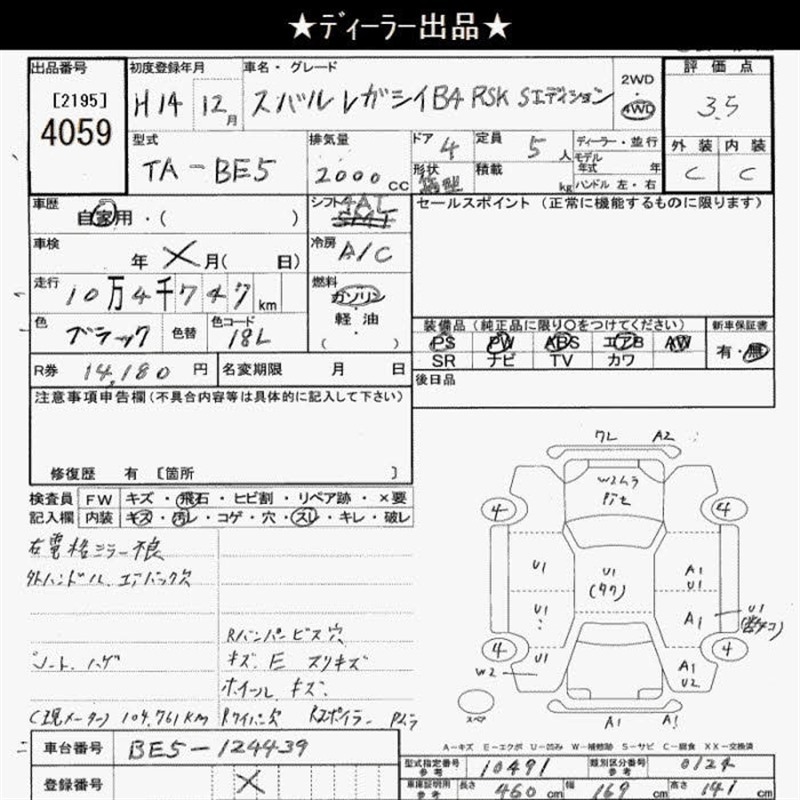 ★ディーラー出品★
出品番号
[2195]
4059
初度登録年月
H14 12月
車名・グレード
スバル レガシイB4 RSK Sエディション
2WD
4WD
評価点
3.5
外装 内装
C C
型式
TA-BE5
排気量
2000 CC
ドア 4
形状 箱型
定員 5人
積載 kg
ディーラー・並行
モデル年式 年
ハンドル 左・右
車歴
自家用・( )
シフト 4AT
車検
年 × 月( 日)
冷房 A/C
走行
10万4千747 km
燃料
ガソリン
軽・油
( )
色
ブラック
色替
色コード
18L
R券 14,180 円
名変期限 月 日
セールスポイント (正常に機能するものに限ります)
装備品 (純正品に限り〇をつけてください)
PS PW ABS エアB AW
SR ナビ TV カワ
新車保証書
有・無
後日品
注意事項申告欄(不具合内容等は具体的に記入して下さい)
修復歴 有 [箇所 ]
検査員
記入欄
FW キズ・飛石・ヒビ割・リペア跡・×要
内装 キズ・汚レ・コゲ・穴・スレ・キレ・破レ
右電格ミラー狼
外ハンドル エアバック欠
Rバンパービス穴
シート ハゲ
キズ E スリキズ
ホイール キズ
(現メーター) 104,761KM
Rワイパー欠 Rスポイラー Pムラ
ワレ A2
W2ムラ
4 4
U1
U1
(タワ)
A1
U1
U1
A1
U1
4 4
U1
W2
A1
U2
スペア
A1 A1
A-キズ E-エクボ U-凹み W-補修跡 S-サビ C-腐食 XX-交換済
車台番号 BE5-124439
登録番号 ×
型式指定番号
参考
10491
類別区分番号
参考
0124
車庫証明用
参考
長さ 460 cm 幅 169 cm 高さ 141 cm